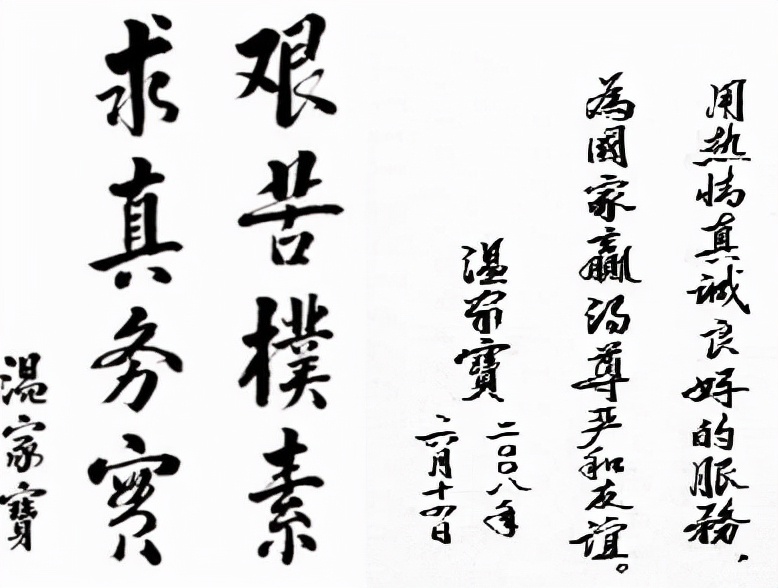 艰苦樸素
求真务實
温家寶
用热情真誠良好的服務、
為國家贏得尊严和友誼。
温家寶
二〇〇八年
六月十四日